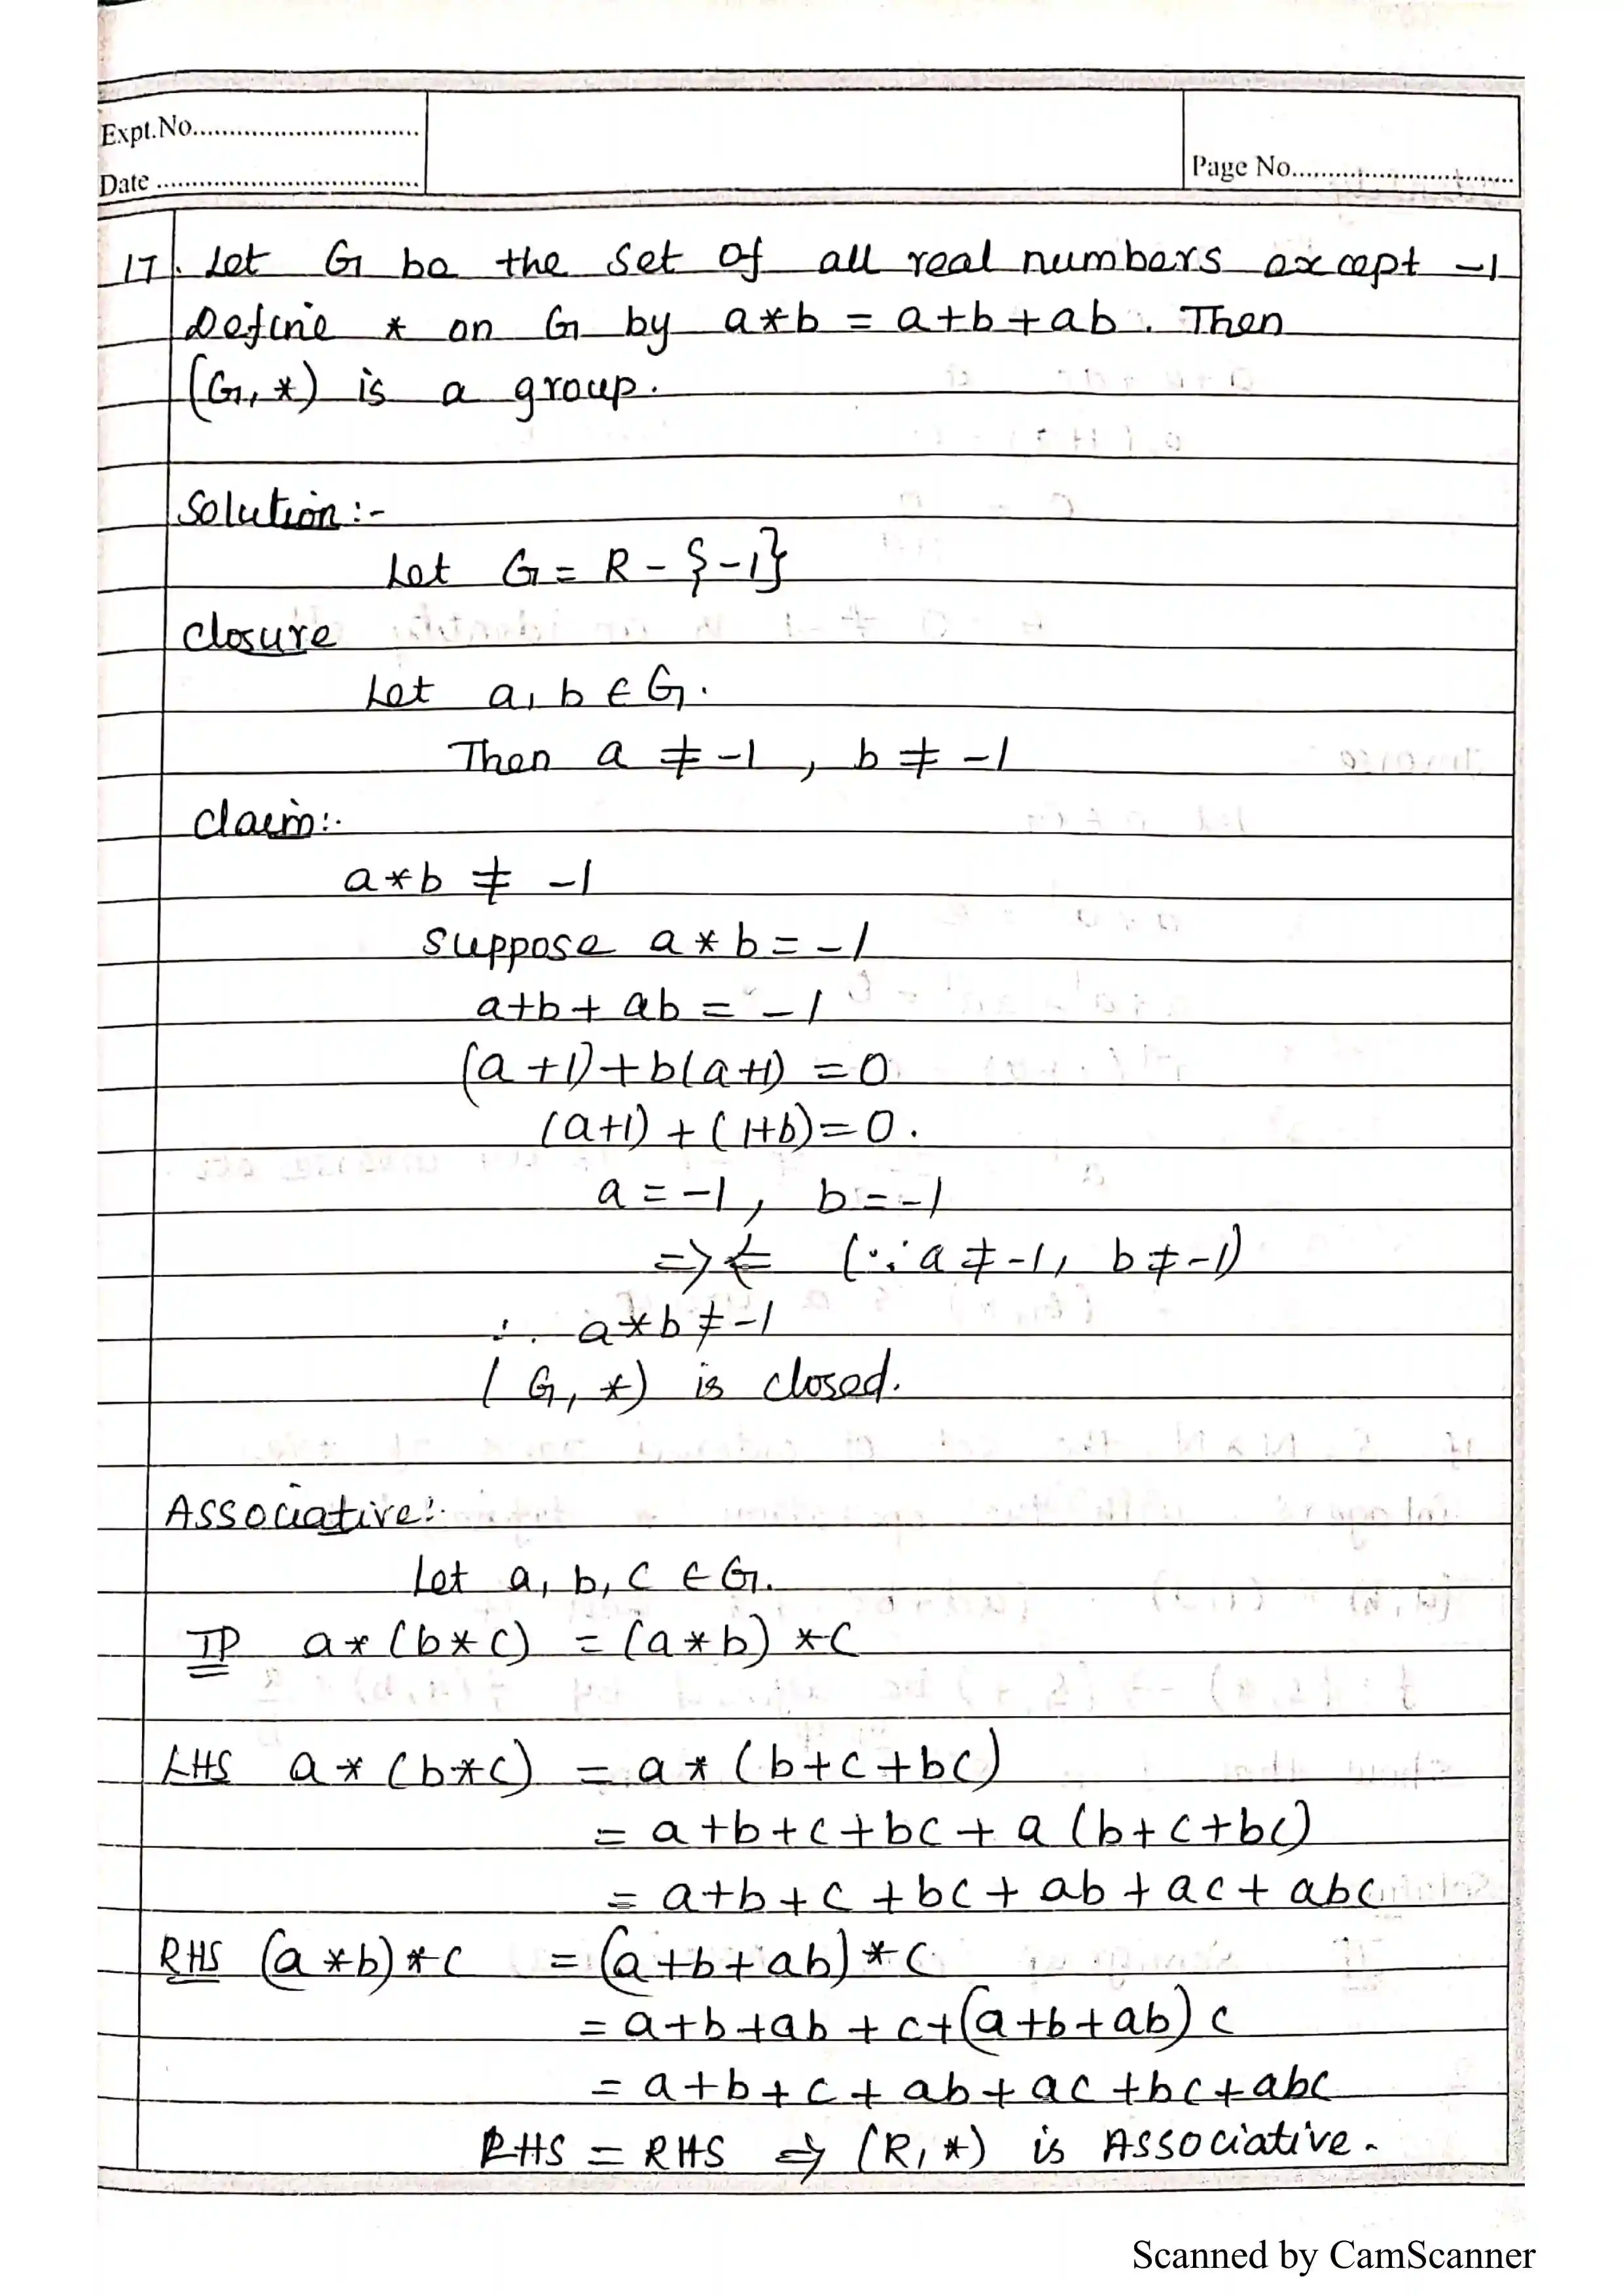 Expt.No..............................
Date ....................................
Page No..............................
17. Let G be the set of all real numbers except -1
Define * on G by a*b = a+b+ab. Then
(G, *) is a group.
Solution:-
Let G = R - {-1}
closure
Let a, b ∈ G.
Then a ≠ -1, b ≠ -1
claim:-
a*b ≠ -1
suppose a*b = -1
a+b+ab = -1
(a+1)+b(a+1) = 0
(a+1) + (1+b) = 0.
a = -1, b = -1
⇒⇐ (∵ a ≠ -1, b ≠ -1)
∴ a*b ≠ -1
(G, *) is closed.
Associative:-
Let a, b, c ∈ G.
TP a*(b*c) = (a*b)*c
LHS a*(b*c) = a*(b+c+bc)
= a+b+c+bc+a(b+c+bc)
= a+b+c+bc+ab+ac+abc
RHS (a*b)*c = (a+b+ab)*c
= a+b+ab+c+(a+b+ab)c
= a+b+c+ab+ac+bc+abc
RHS = RHS ⇒ (R, *) is Associative.
Scanned by CamScanner